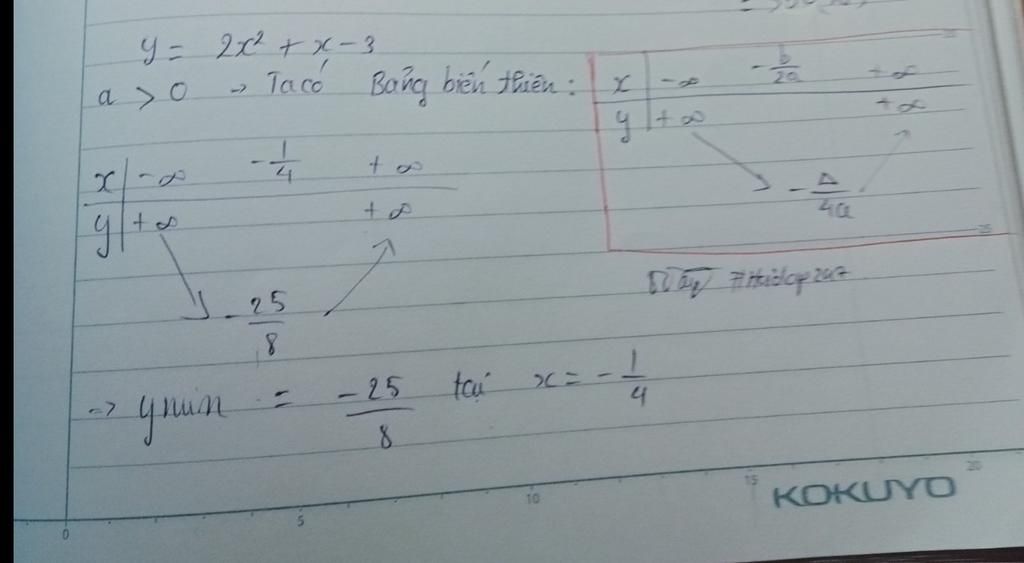 y = 2x² + x - 3
a > 0 → Ta có Bảng biến thiên:
x -∞ -b/2a +∞
y +∞ +∞
-Δ/4a
x -∞ -1/4 +∞
y +∞ +∞
-25/8
#Hoidap247
→ ymin = -25/8 tại x = -1/4
0 5 10 15 20
KOKUYO